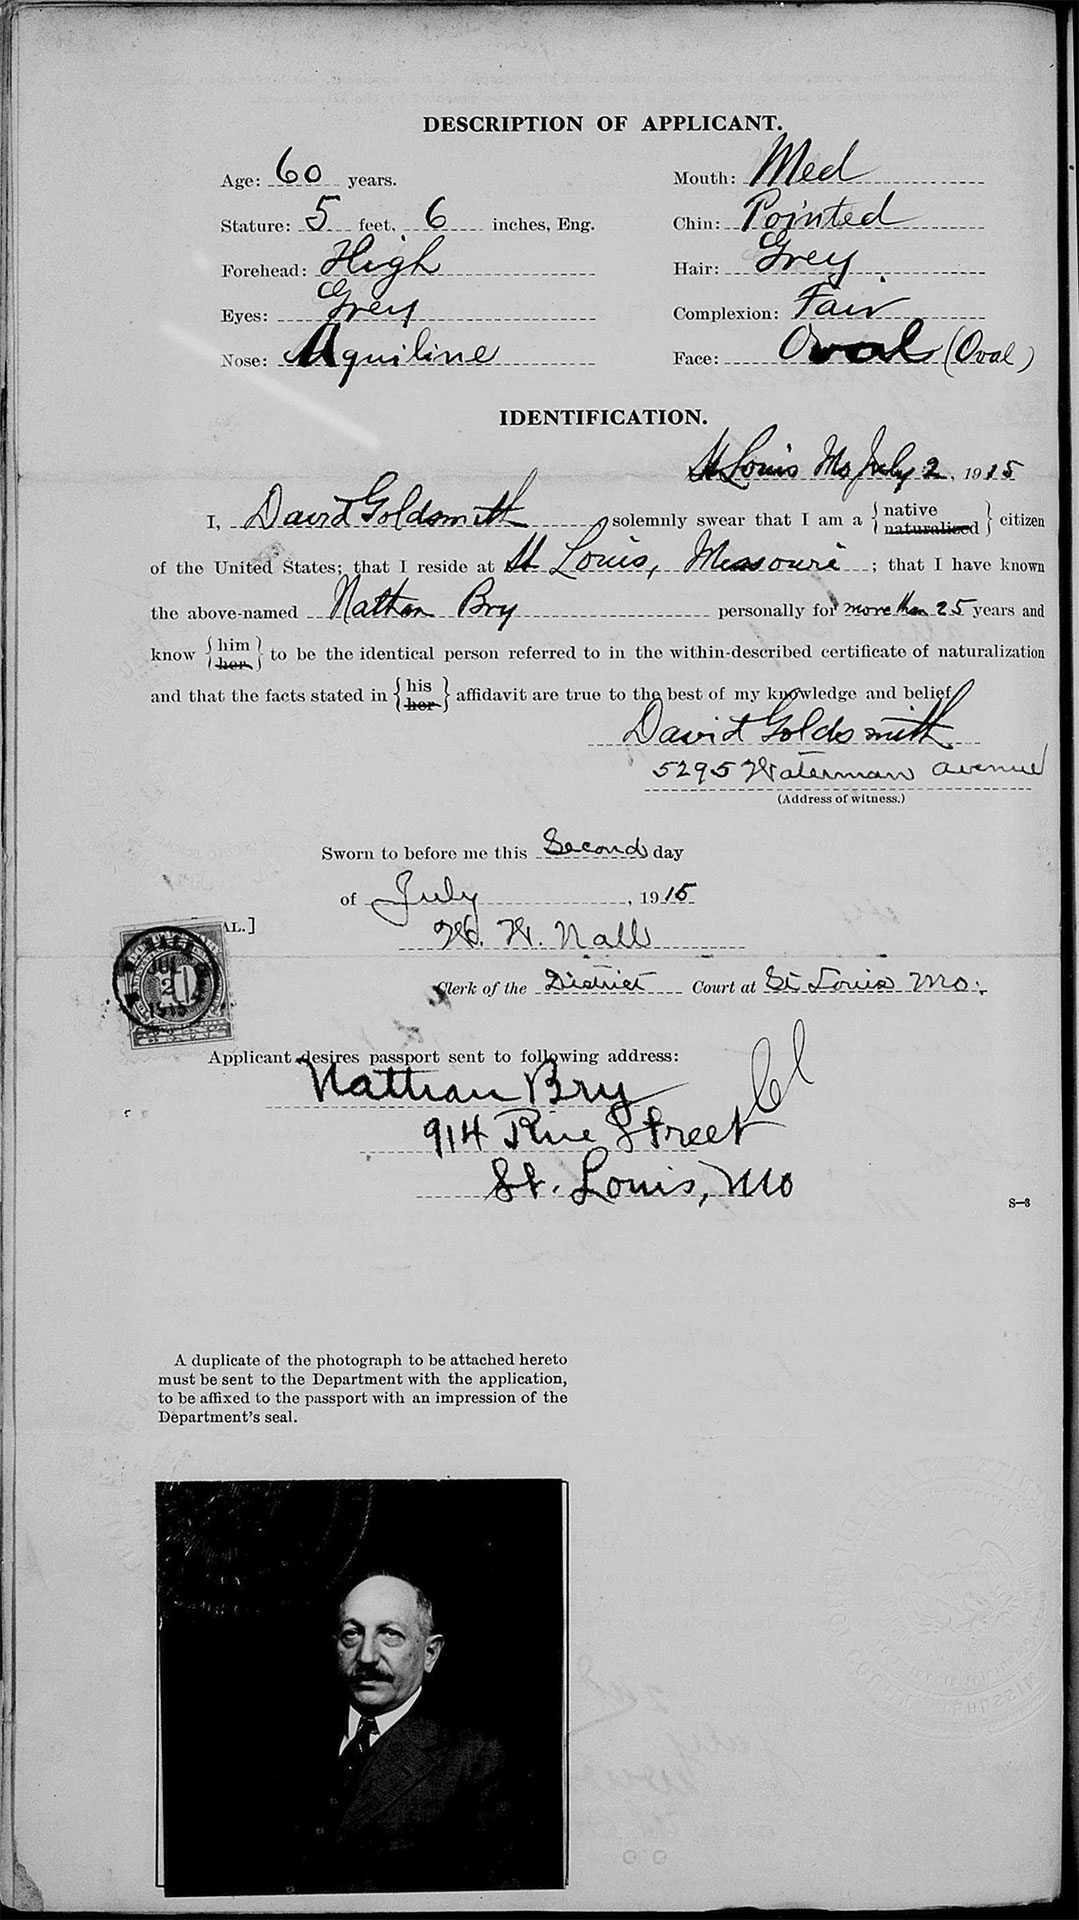 DESCRIPTION OF APPLICANT.
Age: 60 years. Mouth: Med
Stature: 5 feet, 6 inches, Eng. Chin: Pointed
Forehead: High Hair: Grey
Eyes: Grey Complexion: Fair
Nose: Aquiline Face: Oval (Oval)
IDENTIFICATION.
St Louis Mo July 2, 1915
I, David Goldsmith solemnly swear that I am a {native naturalized} citizen
of the United States; that I reside at St Louis, Missouri; that I have known
the above-named Nathan Bry personally for more than 25 years and
know {him her} to be the identical person referred to in the within-described certificate of naturalization
and that the facts stated in {his her} affidavit are true to the best of my knowledge and belief.
David Goldsmith
5295 Waterman Avenue
(Address of witness.)
Sworn to before me this Second day
of July, 1915
AL.]
W. W. Nall
JUL 2 1915
Clerk of the District Court at St Louis Mo.
Applicant desires passport sent to following address:
Nathan Bry
914 Pine Street
St. Louis, Mo
S—3
A duplicate of the photograph to be attached hereto
must be sent to the Department with the application,
to be affixed to the passport with an impression of the
Department's seal.